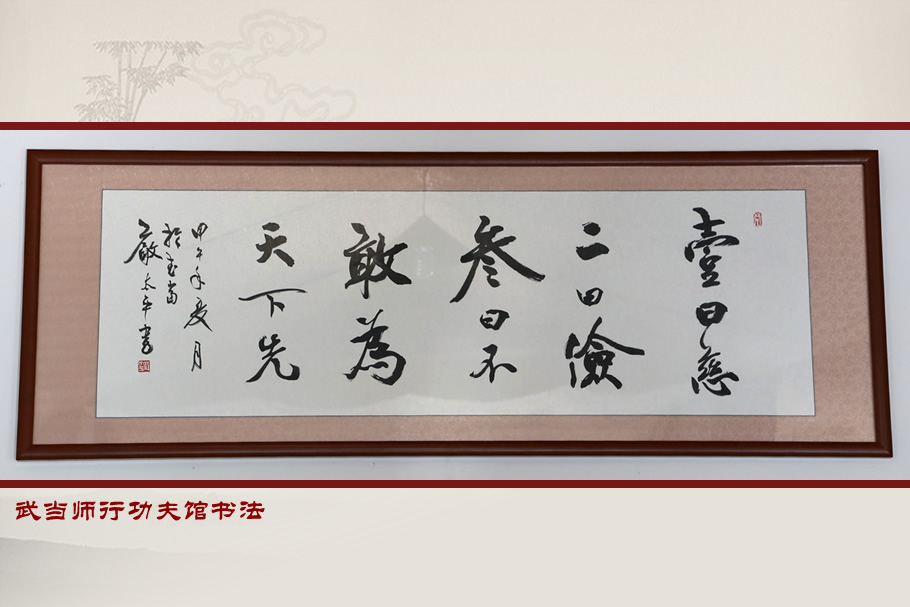 壹曰慈
二曰儉
叁曰不
敢為
天下先
甲午年夏月
於武當
嚴太平書
武当师行功夫馆书法